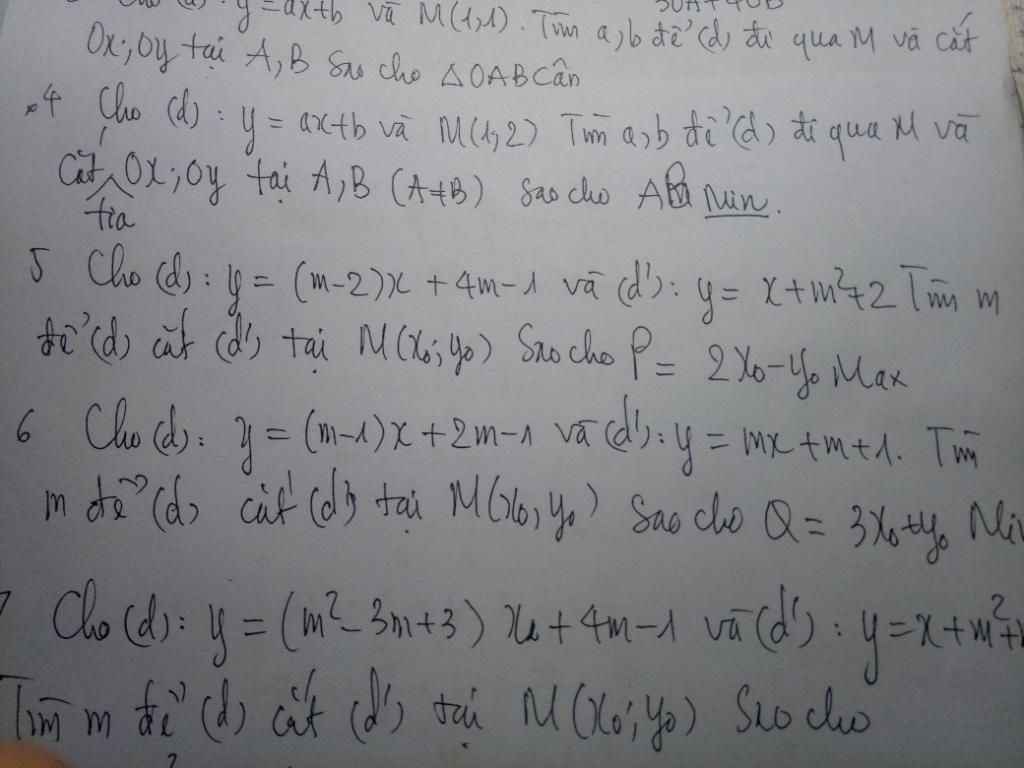 Cho (d): y = ax+b và M(1,1). Tìm a,b để (d) đi qua M và cắt
Ox; Oy tại A,B Sao cho △OAB Cân
*4 Cho (d): y = ax+b và M(1,2) Tìm a,b để (d) đi qua M và
cắt tia Ox; Oy tại A,B (A≠B) sao cho Min.
5 Cho (d): y = (m-2)x + 4m-1 và (d'): y = x+m²+2 Tìm m
để (d) cắt (d') tại M(x₀;y₀) Sao cho P = 2x₀-y₀ Max
6 Cho (d): y = (m-1)x + 2m-1 và (d'): y = mx+m+1. Tìm
m để (d) cắt (d') tại M(x₀,y₀) Sao cho Q = 3x₀+y₀ Min
7 Cho (d): y = (m²-3m+3)x + 4m-1 và (d'): y = x+m²+
Tìm m để (d) cắt (d') tại M(x₀;y₀) Sao cho